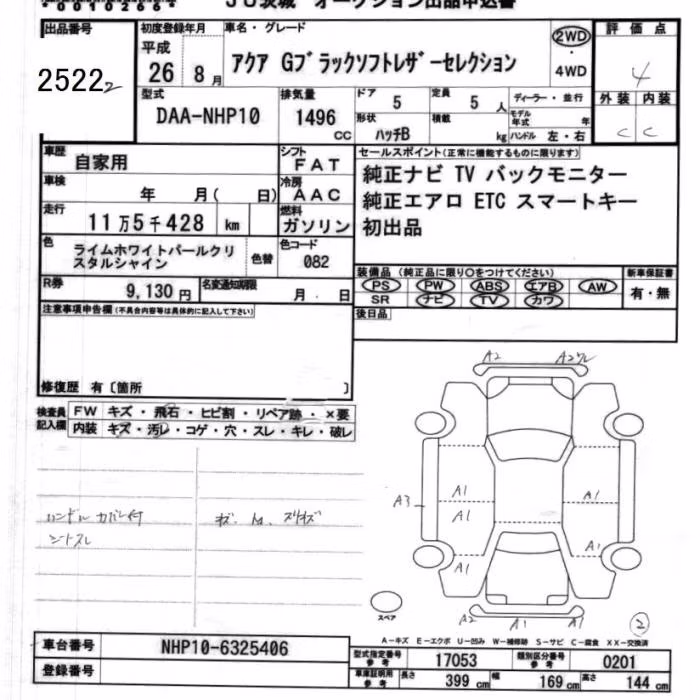 JU茨城 オークション出品申込書
出品番号
2522 2
初度登録年月
平成
26 8月
車名・グレード
アクア Gブラックソフトレザーセレクション
2WD
・
4WD
評価点
4
外装 内装
C C
型式
DAA-NHP10
排気量
1496
CC
ドア
5
定員
5 人
ディーラー・並行
形状
ハッチB
積載
kg
モデル年式 年
ハンドル 左・右
車歴
自家用
シフト
FAT
車検
年 月( 日)
冷房
AAC
走行
11万5千428 km
燃料
ガソリン
色
ライムホワイトパールクリスタルシャイン
色替
色コード
082
R券
9,130円
名変通知期限
月 日
セールスポイント(正常に機能するものに限ります)
純正ナビ TV バックモニター
純正エアロ ETC スマートキー
初出品
装備品 (純正品に限り○をつけてください)
新車保証書
PS PW ABS エアB AW
有・無
SR ナビ TV カワ
後日品
注意事項申告欄(不具合内容等は具体的に記入して下さい)
修復歴 有〔箇所 〕
検査員記入欄
FW キズ・飛石・ヒビ割・リペア跡・×要
内装 キズ・汚レ・コゲ・穴・スレ・キレ・破レ
ハンドルカバー付
シートスレ
キズ. M. スリキズ
A2
A2ワレ
A3
A1
A1
A1
A1
A1
A2
A1
スペア
2
A-キズ E-エクボ U-凹み W-補修跡 S-サビ C-腐食 XX-交換済
車台番号
NHP10-6325406
登録番号
型式指定番号
参考
17053
類別区分番号
参考
0201
車庫証明用
参考
長さ 399 cm 幅 169 cm 高さ 144 cm